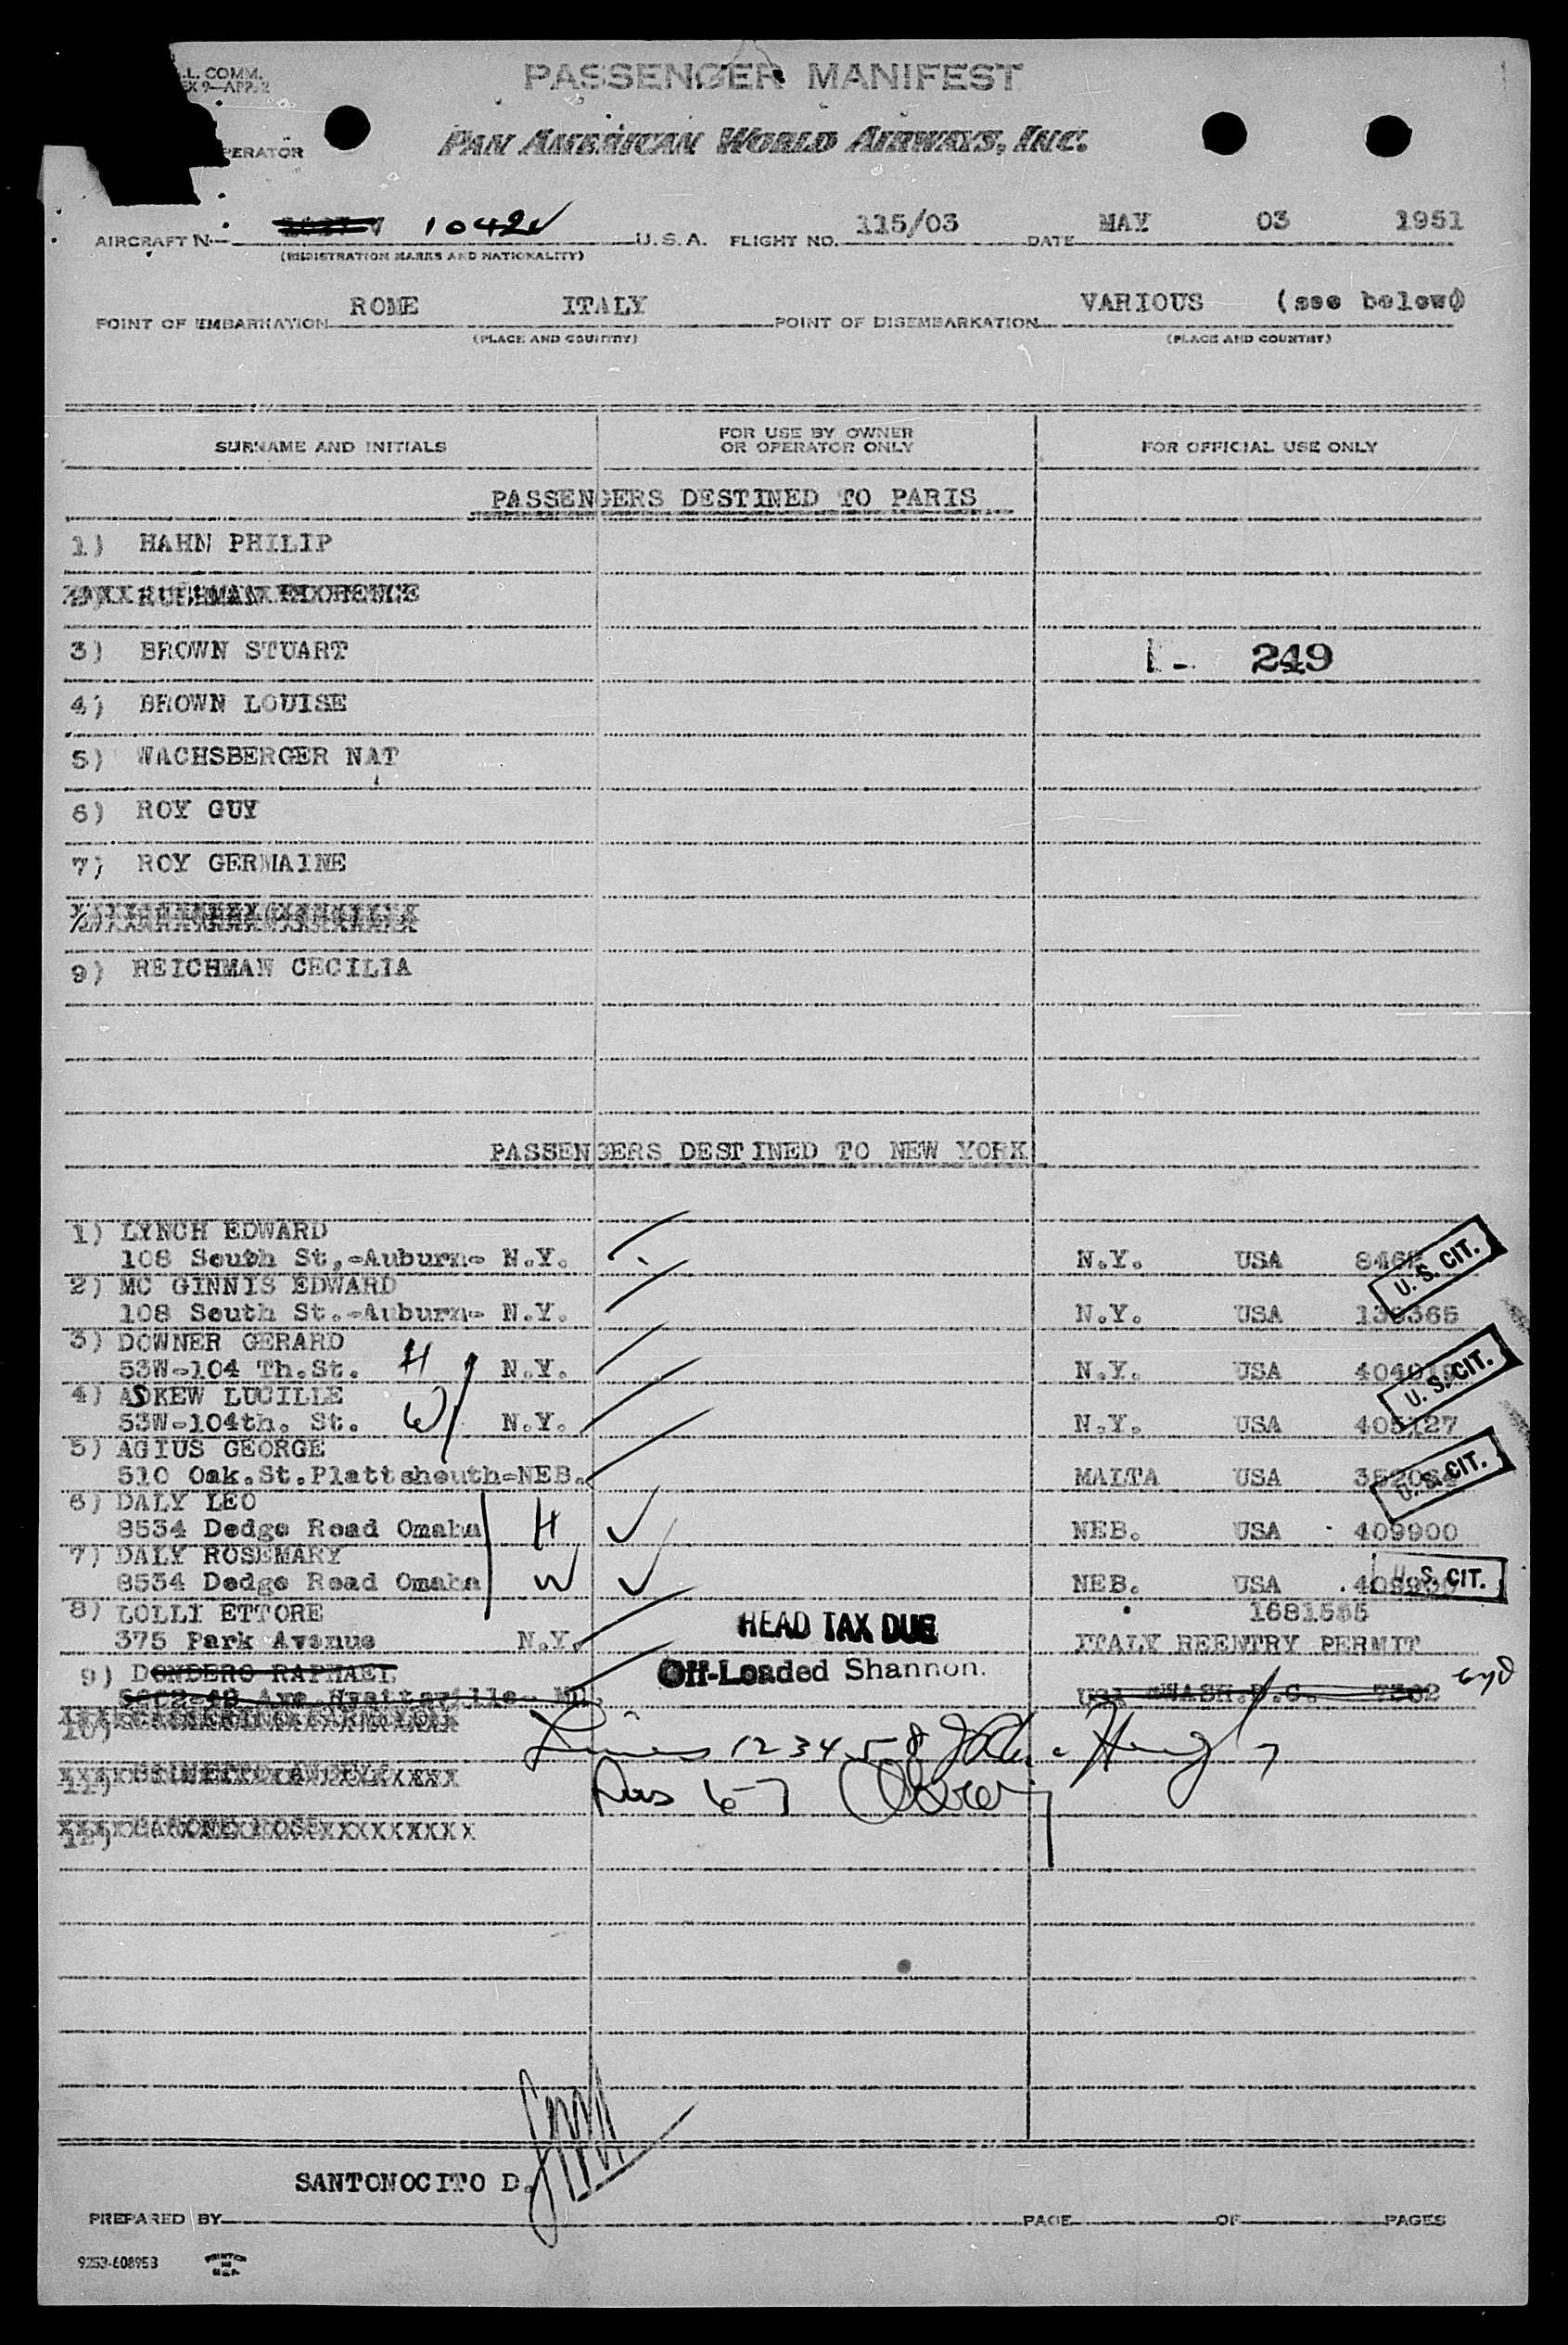 L. COMM.
EX 9-APP. 2
PERATOR
PASSENGER MANIFEST
PAN AMERICAN WORLD AIRWAYS, INC.
AIRCRAFT N- 1042V U.S.A. FLIGHT NO. 115/03 DATE MAY 03 1951
(REGISTRATION MARKS AND NATIONALITY)
POINT OF EMBARKATION ROME ITALY POINT OF DISEMBARKATION VARIOUS (see below)
(PLACE AND COUNTRY) (PLACE AND COUNTRY)
SURNAME AND INITIALS FOR USE BY OWNER OR OPERATOR ONLY FOR OFFICIAL USE ONLY
PASSENGERS DESTINED TO PARIS
1) HAHN PHILIP
3) BROWN STUART 249
4) BROWN LOUISE
5) WACHSBERGER NAT
6) ROY GUY
7) ROY GERMAINE
9) REICHMAN CECILIA
PASSENGERS DESTINED TO NEW YORK
1) LYNCH EDWARD
108 South St.-Auburn- N.Y. N.Y. USA U.S. CIT.
2) MC GINNIS EDWARD
108 South St.-Auburn- N.Y. N.Y. USA
3) DOWNER GERARD
53W-104 Th.St. H N.Y. N.Y. USA U.S. CIT.
4) ASKEW LUCILLE
53W-104th. St. W N.Y. N.Y. USA 405127
5) AGIUS GEORGE
510 Oak.St.Plattshouth-NEB. MALTA USA U.S. CIT.
6) DALY LEO
8534 Dodge Road Omaha H NEB. USA 409900
7) DALY ROSEMARY
8534 Dodge Road Omaha W NEB. USA U.S. CIT.
8) LOLLI ETTORE 1681555
375 Park Avenue N.Y. HEAD TAX DUE ITALY REENTRY PERMIT
9) DONDERO RAPHAEL Off-Loaded Shannon.
10)
11)
12)
SANTONOCITO D.
PREPARED BY PAGE OF PAGES
9253-608953 PRINTED IN U.S.A.